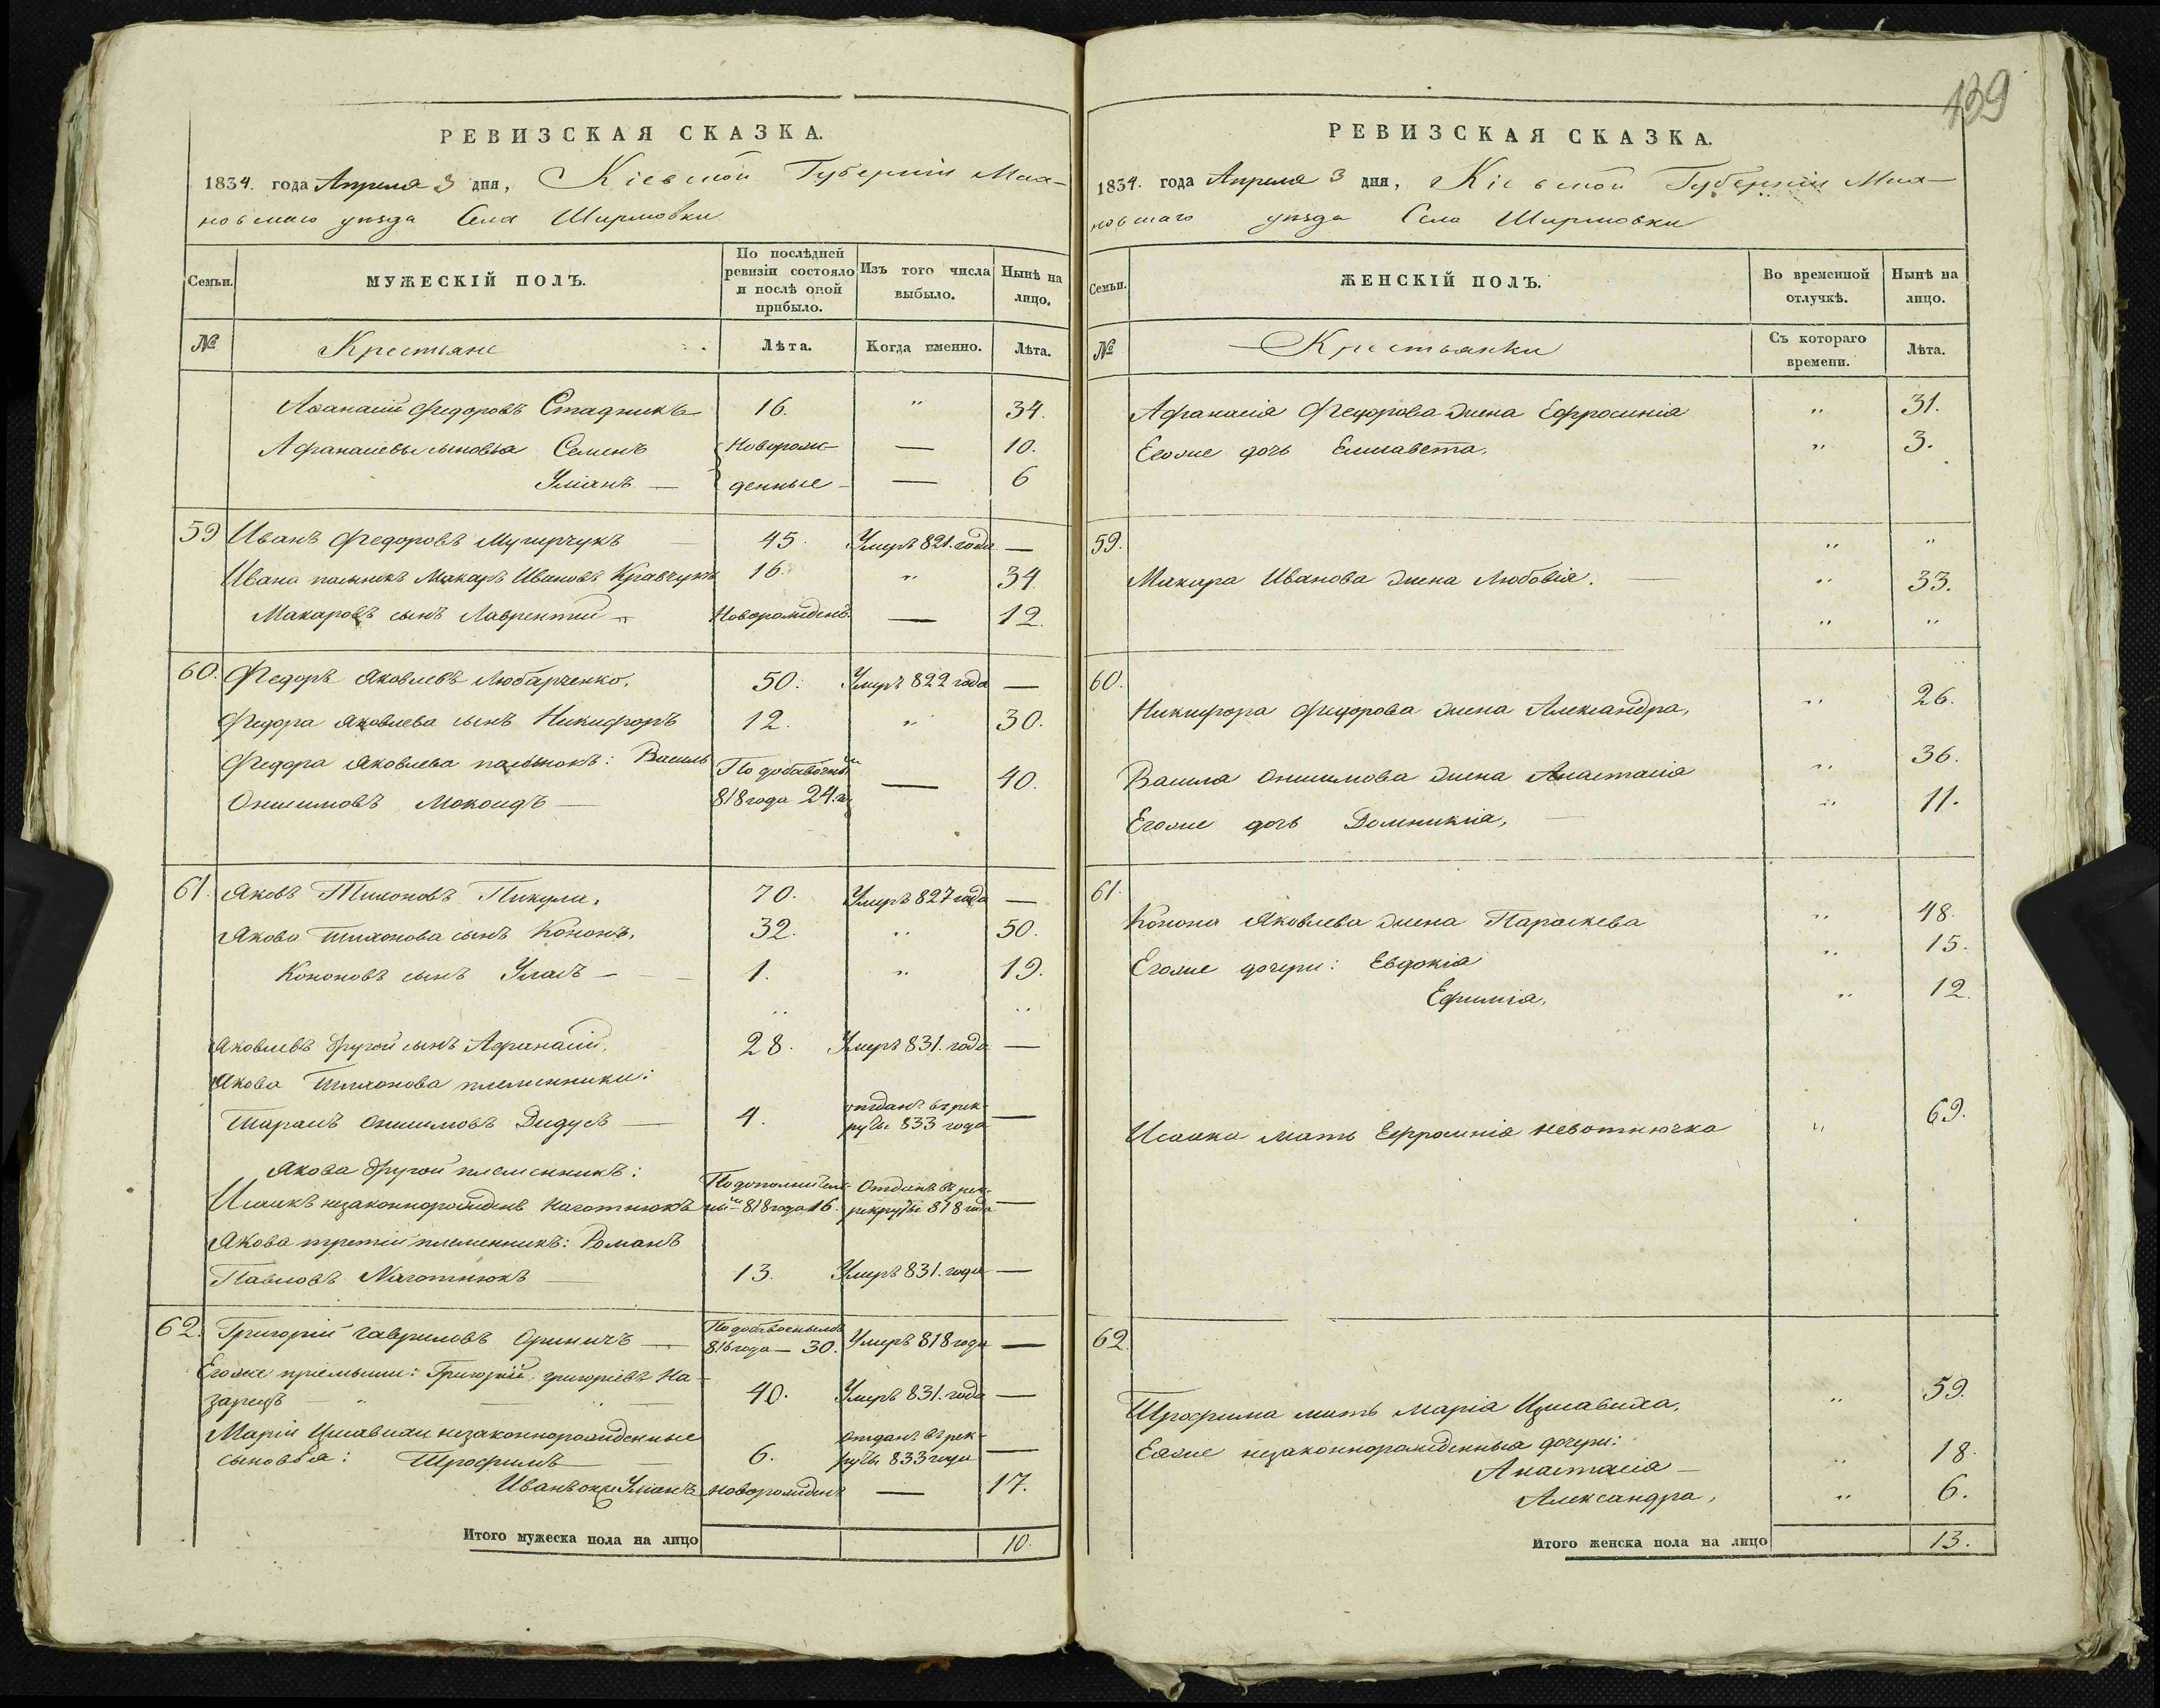 139
РЕВИЗСКАЯ СКАЗКА.
1834. года Апреля 3 дня, Кіевской Губерніи Мах-
новскаго уѣзда Села Ширмовки
Семьи.
МУЖЕСКІЙ ПОЛЪ.
По послѣдней ревизіи состояло и послѣ оной прибыло.
Изъ того числа выбыло.
Нынѣ на лицо.
№ Крестьяне Лѣта. Когда именно. Лѣта.
Афанасий Федоровъ Стадникъ 16. " 34.
Афанасиевы сыновья Семенъ Новорож- — 10.
Улианъ — денные — — 6
59 Иванъ Федоровъ — 45. Умеръ 821. года —
Ивана пасынокъ Макаръ Ивановъ Кравчукъ 16. " 34.
Макаровъ сынъ Лаврентий Новорожденъ. — 12.
60. Федоръ Яковлевъ Любарченко. 50. Умеръ 822 года —
Федора Яковлева сынъ Никифоръ 12. " 30.
Федора Яковлева пасынокъ: Василь По добавочной
Онисимовъ — 818 года 24. — 40.
61. Яковъ Тихоновъ Пикули, 70. Умеръ 827 года —
Якова Тихонова сынъ Кононъ, 32. " 50.
Кононовъ сынъ Уласъ — 1. " 19.
" "
Яковлевъ другой сынъ Афанасий, 28. Умеръ 831. года —
Якова Тихонова племенники:
Тарасъ Онисимовъ Дидусъ — 4. отданъ въ рек-
руты 833 года —
Якова другой племенникъ:
Исаакъ незаконнорожденъ Наготнюкъ 818 года 16. Отданъ въ рекруты 818 года —
Якова третій племенникъ: Романъ
Павловъ Наготнюкъ — 13. Умеръ 831. года —
62. Григорій Гавриловъ — 816 года — 30. Умеръ 818 года —
Егоже приемыши: Григорій Григоріевъ На-
зарецъ — 40. Умеръ 831. года —
Маріи незаконнорожденные
сыновья: Трофимъ — 6. отданъ въ рек-
руты 833 года —
Иванъ онже Улианъ новорожденъ — 17.
Итого мужеска пола на лицо 10.
РЕВИЗСКАЯ СКАЗКА.
1834. года Апреля 3 дня, Кіевской Губерніи Мах-
новскаго уѣзда Села Ширмовки
Семьи.
ЖЕНСКІЙ ПОЛЪ.
Во временной отлучкѣ.
Нынѣ на лицо.
№ Крестьянки Съ котораго времени. Лѣта.
Афанасія Федорова жена Ефросинія " 31.
Егоже дочь Елисавета. " 3.
59. " "
Макара Иванова жена Любовія. — " 33.
" "
60.
Никифора Федорова жена Александра, " 26.
Василя Онисимова жена Анастасія " 36.
Егоже дочь Домникия, — " 11.
61.
Конона Яковлева жена Параскева " 48.
Егоже дочери: Евдокія " 15.
Ефимія, " 12.
Исаака мать Ефросинія " 69.
62.
Трофима мать Марія " 59.
Еяже незаконнорожденныя дочери:
Анастасія — " 18.
Александра, " 6.
Итого женска пола на лицо 13.